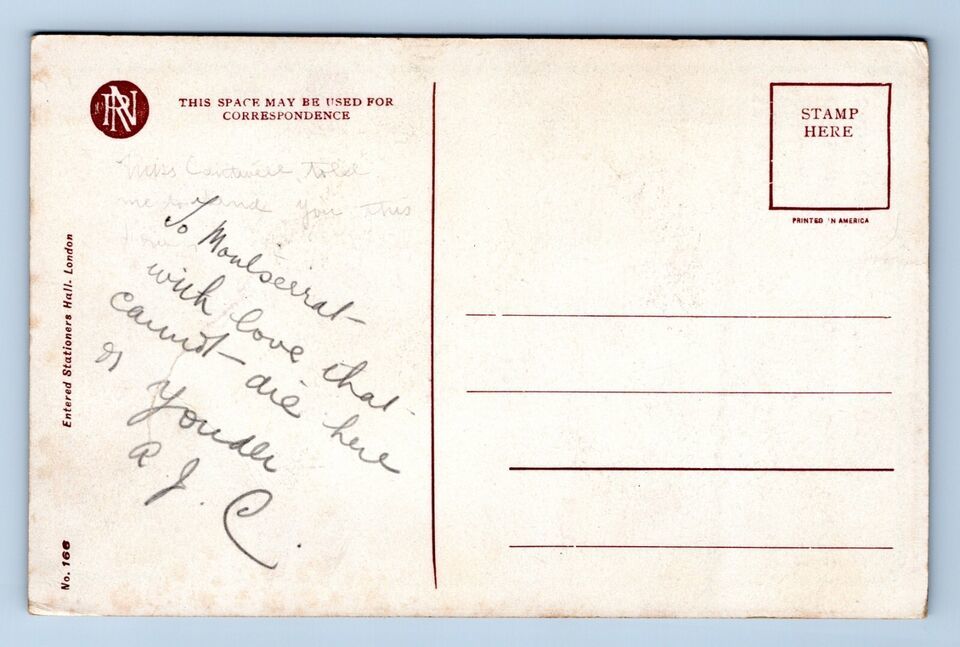 RN
THIS SPACE MAY BE USED FOR
CORRESPONDENCE
STAMP
HERE
PRINTED IN AMERICA
Miss told
me to hand you this
To Montserrat
with love that
cannot die here
or yonder
R. J. C.
Entered Stationers Hall. London
No. 166